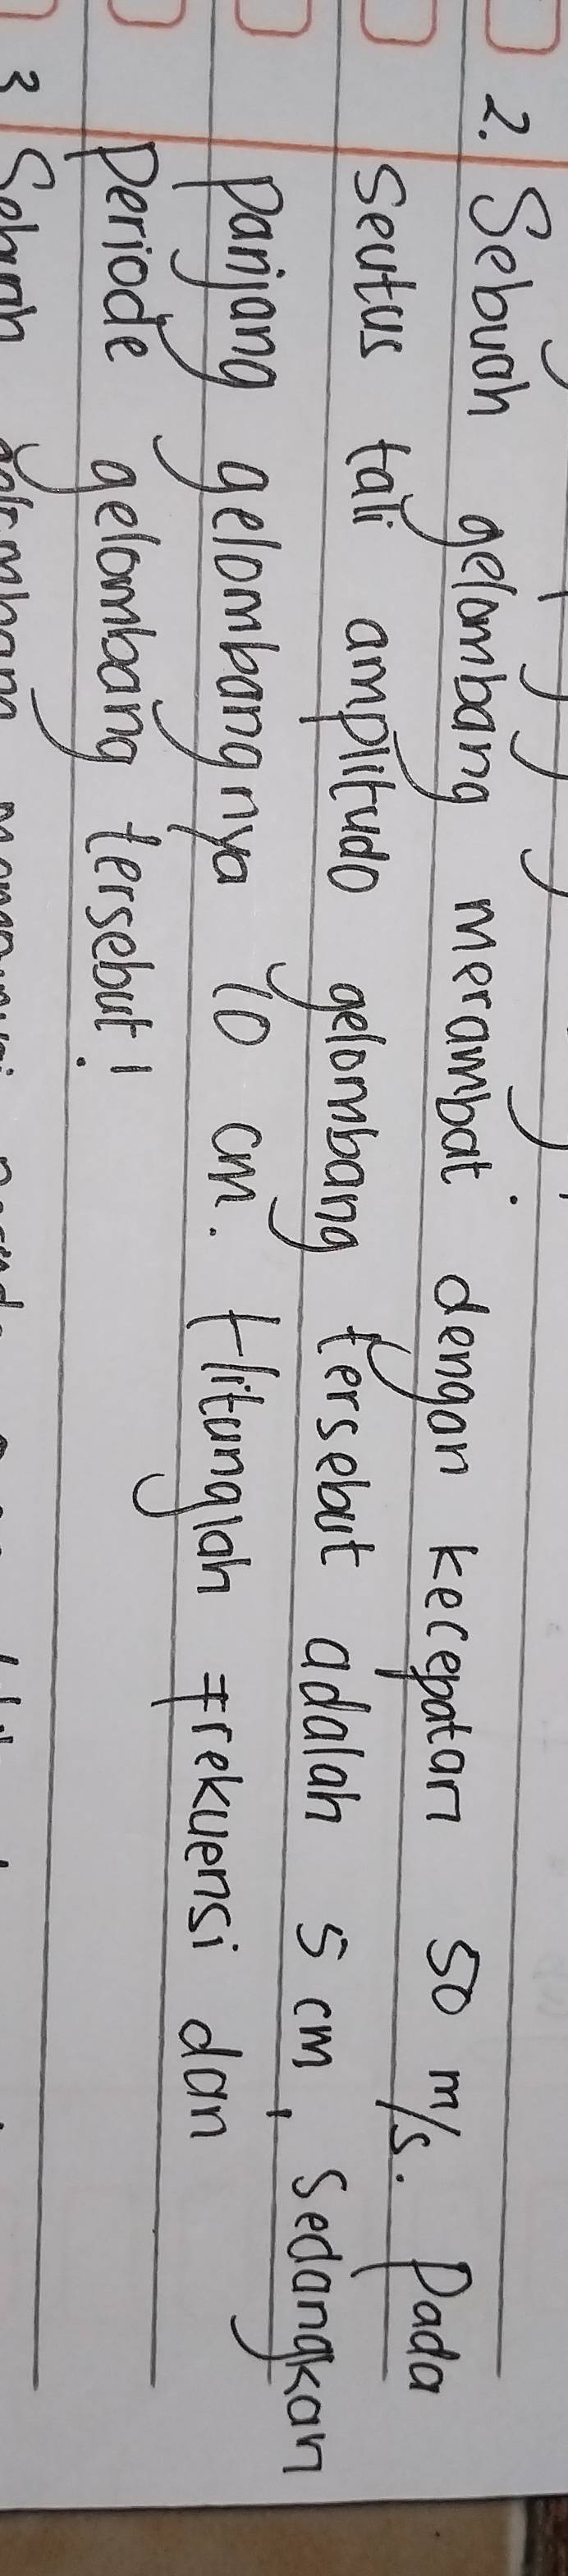 2. Sebuah gelombang merambat dengan kecepatan 50 m/s. Pada
seutus tali amplitudo gelombang tersebut adalah 5 cm, sedangkan
panjang gelombangnya 10 cm. Hitunglah frekuensi dan
periode gelombang tersebut!
3 Sebuah gelombang